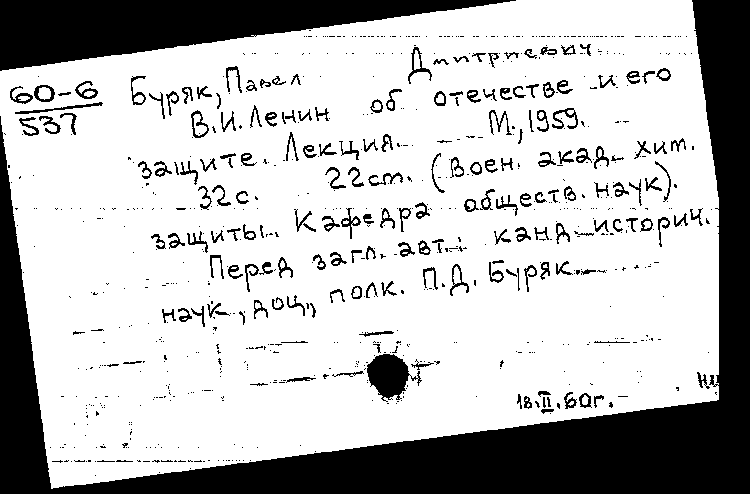 60-6
537
Буряк, Павел Дмитриевич.
В.И.Ленин об отечестве и его
защите. Лекция. М., 1959.
32с. 22cm. (Воен. акад. хим.
защиты. Кафедра обществ. наук).
Перед загл. авт.: канд. историч.
наук, доц., полк. П.Д. Буряк.
18.II.60г.